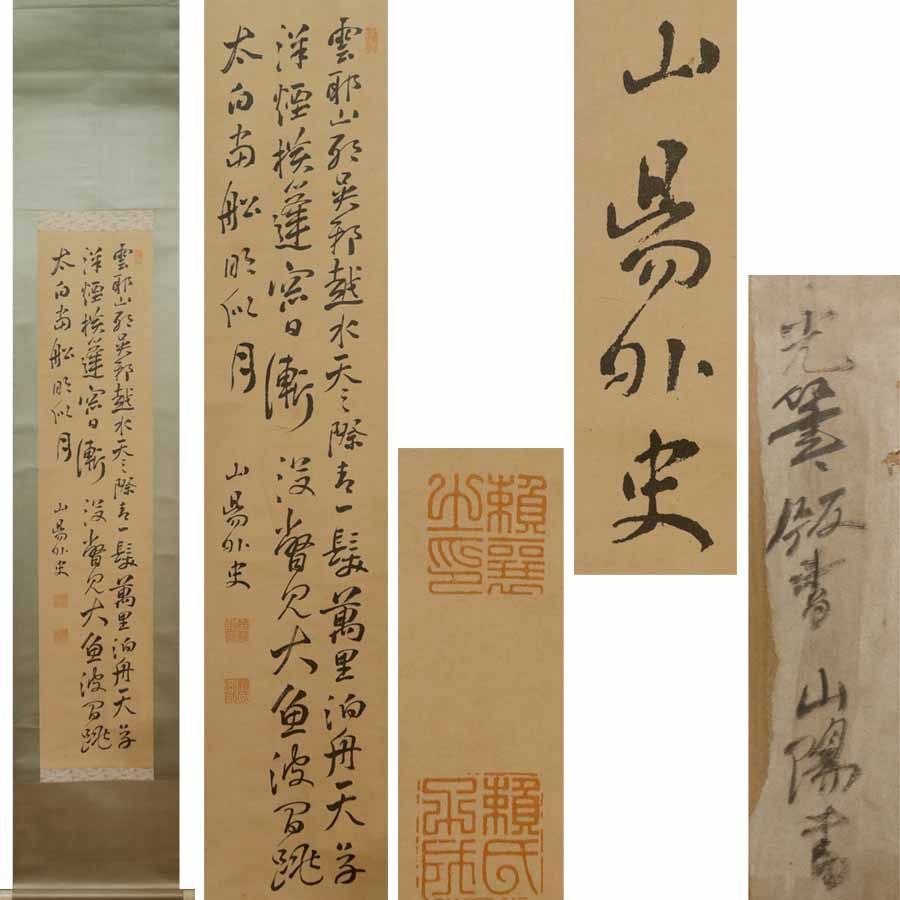 雲耶山耶呉耶越水天之際青一髪萬里泊舟天草
洋煙横蓬窓日漸没瞥見大魚波間跳
太白當船明似月
山陽外史
雲耶山耶呉耶越水天之際青一髪萬里泊舟天草
洋煙横蓬窓日漸没瞥見大魚波間跳
太白當船明似月
山陽外史
山陽外史
賴襄之印
賴氏子成
山陽書